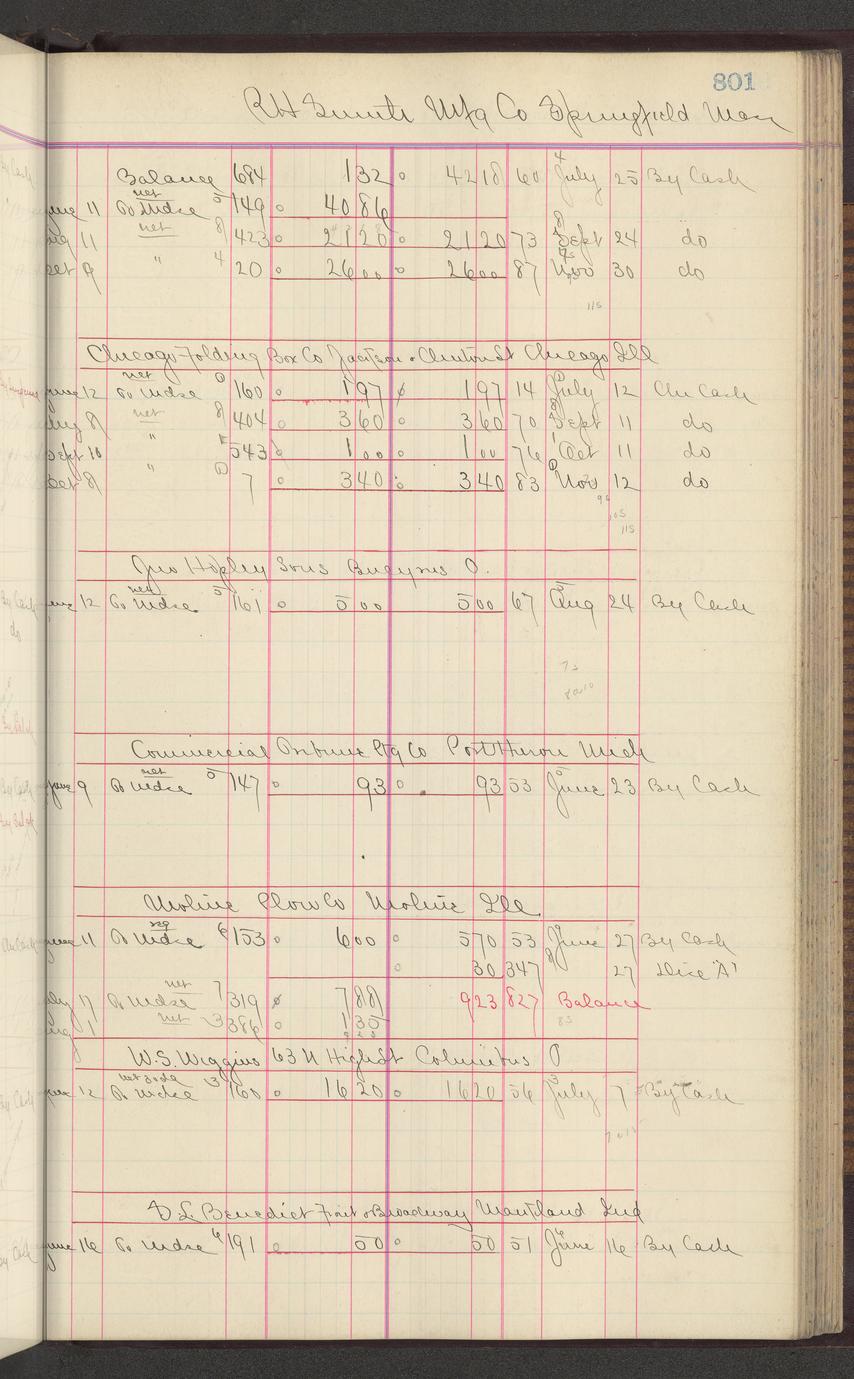 801
RH Smith Mfg Co Springfield Mass
Balance 684 132 4218 60 July 25 By Cash
June 11 To Mdse net 5 149 4086
Aug 11 net 8 423 2120 2120 73 Sept 24 do
Oct 9 " 4 20 2600 2600 87 Nov 30 do
115
Chicago Folding Box Co Jackson & Clinton St Chicago Ill
June 12 To Mdse net 160 197 197 14 July 12 Chi Cash
Aug 8 net 8 404 360 360 70 Sept 11 do
Sept 10 " 543 100 100 76 Oct 11 do
Oct 8 " 7 340 340 83 Nov 12 do
115
Jno Hopley Sons Bucyrus O.
June 12 To Mdse net 5 161 500 500 67 Aug 24 By Cash
73
Commercial Tribune Ptg Co Port Huron Mich
June 9 To Mdse net 5 147 93 93 53 June 23 By Cash
Moline Plow Co Moline Ill
June 11 To Mdse reg 6 153 600 570 53 June 27 By Cash
30 347 27 Disc "A"
July 17 To Mdse net 7 319 788 923 827 Balance
Aug 1 net 3 386 135
923 83
W.S. Wiggins 63 N High St Columbus O
June 12 To Mdse 3 160 1620 1620 56 July 7 By Cash
D L Benedict Front & Broadway Ind
June 16 To Mdse 6 191 50 50 51 June 16 By Cash